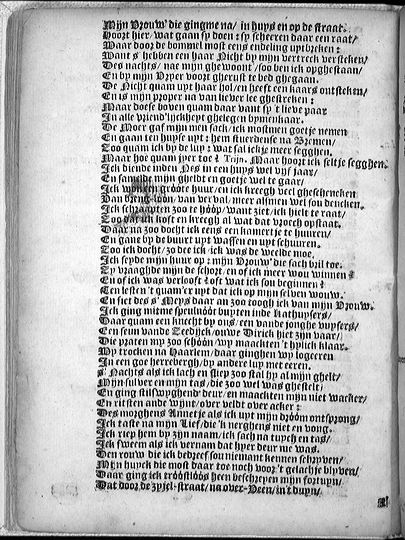 Mijn Vrouw die gingme na/ in huys en op de straat.
Hoort hier/ wat gaan sy doen: sy scheeren daar een raat/
Waar door de bommel most eens endeling uptbreken:
Want s' hebben een haar Nicht by mijn vertreck versteken/
Des nachts/ nae mijn ghewoont/ soo ben ick opghestaan/
En by mijn Vryer voort gherust te bed ghegaan.
De Nicht quam upt haar hol/en heeft een kaars ontsteken/
En is mijn proper na van liever lee ghestreken:
Maar doese boven quam daar vant sy 't lieve paar
In alle vriend'lijckheyt ghelegen by menkaar.
De Moer gaf mijn men sack/ick mostmen goetje nemen
En gaan ten huyse upt: hem stuerdense na Bremen/
Too quam ick by de lup: wat sal ickje meer segghen.
Maar hoe quam jyer toe? Trijn. Maar hoort ick seltje segghen.
Jck diende inden Nes in een huys wel vijf jaar/
En samelde mijn gheldt en goetje wel te gaar/
Jck won groote huur/en ick kreegh veel gheschencken
Van loon/van verval/meer alsmen wel sou dencken.
Jck schraapten soo te hoop/want ziet/ick hielt te raat/
Soo dat ick kost en kreegh al wat dat vroech opstaat.
Daar na zoo docht ick eens een kamertje te huuren/
En gane by de buurt upt wassen en upt schuuren.
Zoo ick docht/zo dee ick/ick was de weelde moe.
Jck seyde mijn huur op: mijn Vrouw die sach bril toe.
Zy vraaghde mijn de schort/en of ick meer wou winnen?
En of ick was verloost? oft wat ick sou beginnen?
Ten lesten 't quam'er upt dat ick op mijn selven wouw.
En siet des s' Meys daar an zoo toogh ick van mijn Vrouw.
Jck ging mitme speulnoot buyten inde Kathuysers/
Daar quam een knecht by ons/een vande jonghe vuysers/
Een seun vande Zeedijck/ouwe Dirick hiet zijn vaar/
Die praten my zoo schoon/wy maackten 't hylick klaar.
Wy trocken na Haarlem/daar ginghen wy logeeren
In een goe herrebergh/by andere luy met eeren.
s' Nachts als ick lach en sliep zoo stal hy al mijn ghelt/
Mijn sulver en mijn tas/die zoo wel was ghestelt/
En ging stilswyghend' deur/en maackten mijn niet wacker/
En ritsten ande wijnt/over veldt over acker:
Des morghens Annetje als ick upt mijn droom ontsprong/
Jck taste na mijn Lief/die 'k nerghens niet en vong.
Jck riep hem by zijn naam/ick sach na tuych en tas/
Jck sweem als ick vernam dat hyer deur me was.
Den rouw die ick bedreef sou niemant kennen schryven/
Mijn huyck die most daar toe noch voor 't gelachje blyven/
Daar ging ick troosteloos heen beschreyen mijn fortuyn/
Dat door de Zyjel-straat/na over-Veen/in 't duyn/